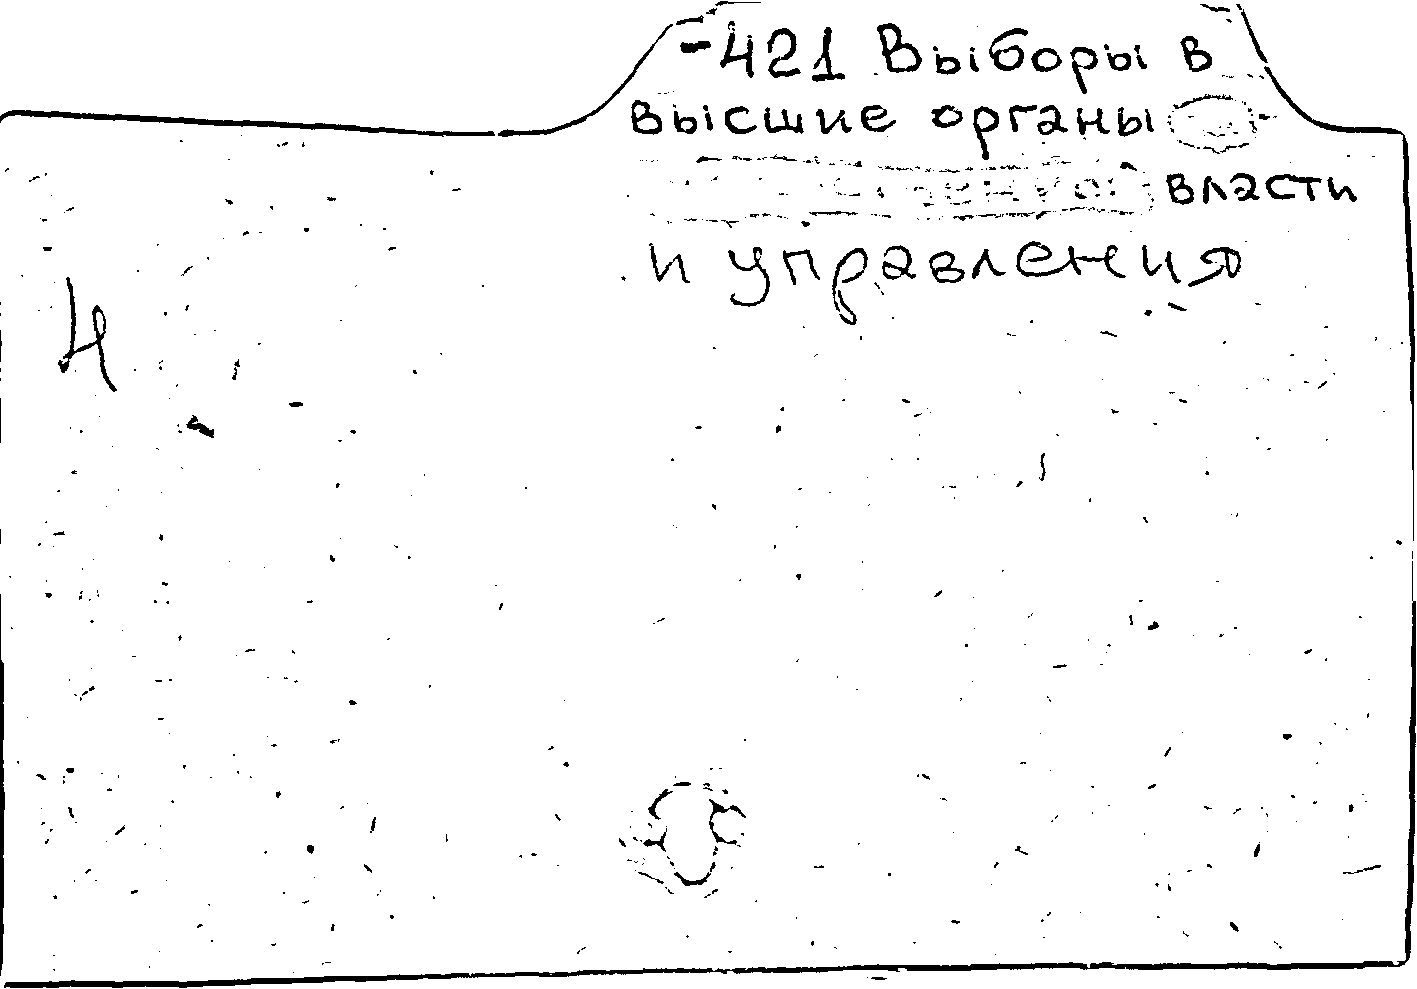 -421 Выборы в
высшие органы
власти
и управления
4